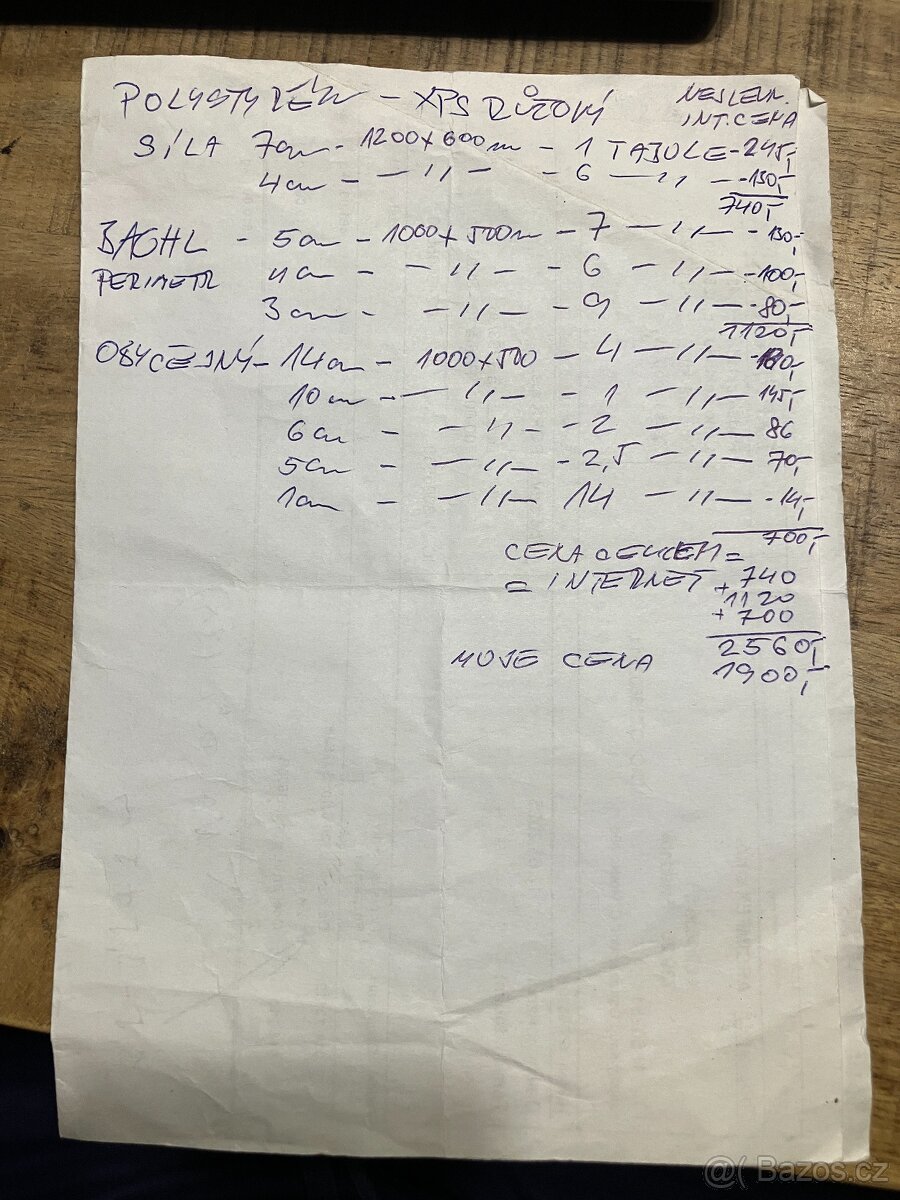 POLYSTYRÉN - XPS RŮŽOVÝ NEJLEVN.
INT. CENA
SÍLA 7cm - 1200x600m - 1 TABULE - 245,-
4cm - -"- - 6 -"- - 130,-
740,-
BACHL - 5cm - 1000x500m - 7 -"- - 130,-
PERIMETR 4cm - -"- - 6 -"- - 100,-
3cm - -"- - 9 -"- - 80,-
1120,-
OBYČEJNÝ - 14cm - 1000x500 - 4 -"-
10cm - -"- - 1 -"- 145,-
6cm - -"- - 2 -"- 86
5cm - -"- - 2,5 -"- 70,-
1cm - -"- 14 -"- - 14,-
700,-
CENA CELKEM =
= INTERNET + 740
+ 1120
+ 700
2560,-
MOJE CENA 1900,-
@( Bazos.cz